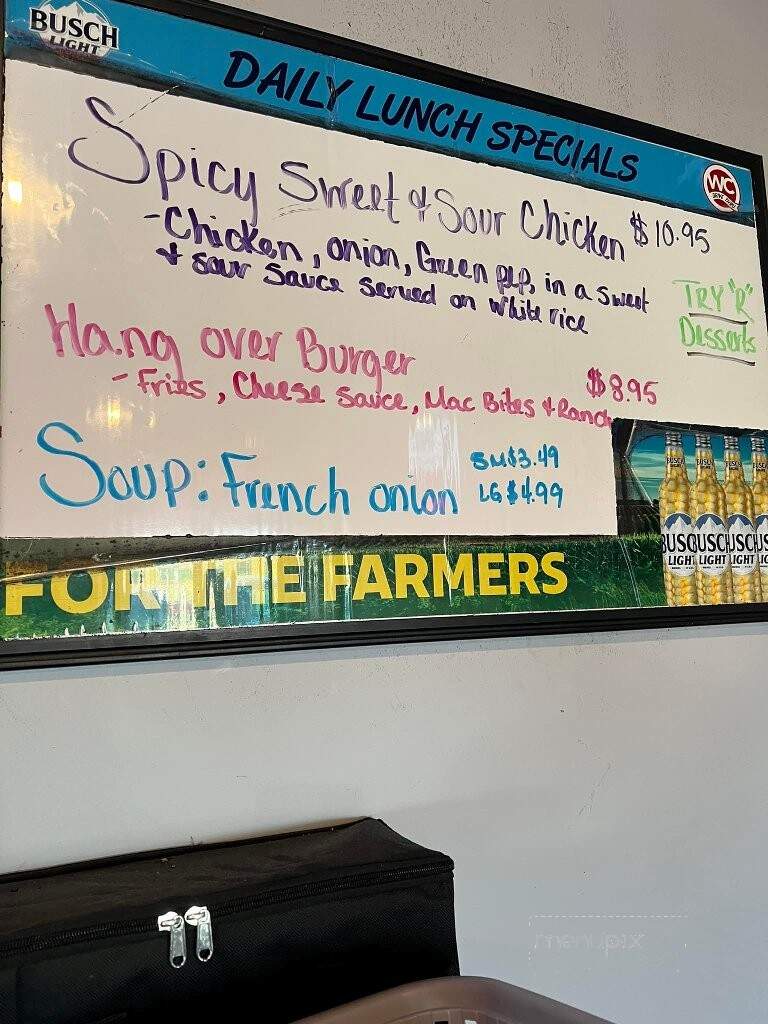 BUSCH
LIGHT
DAILY LUNCH SPECIALS
WC
Spicy Sweet & Sour Chicken $10.95
- Chicken, onion, Green pep, in a sweet
& sour sauce served on white rice
TRY "R"
Desserts
Hang over Burger
- Fries, Cheese sauce, Mac Bites & Ranch $8.95
Soup: French onion SM $3.49
LG $4.99
FOR THE FARMERS
BUSCH LIGHT BUSCH LIGHT BUSCH LIGHT BUSCH LIGHT
menupix